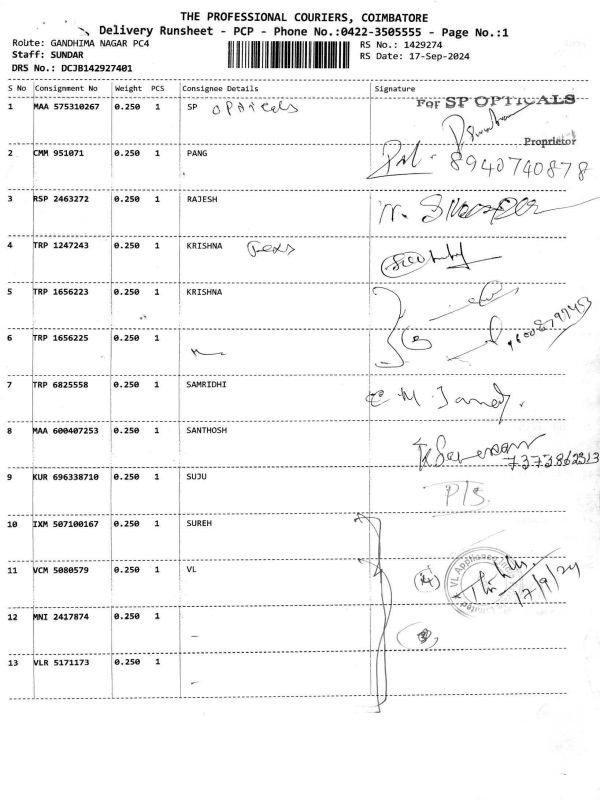 THE PROFESSIONAL COURIERS, COIMBATORE
Delivery Runsheet - PCP - Phone No.:0422-3505555 - Page No.:1
Route: GANDHIMA NAGAR PC4 RS No.: 1429274
Staff: SUNDAR RS Date: 17-Sep-2024
DRS No.: DCJB142927401
S No Consignment No Weight PCS Consignee Details Signature
1 MAA 575310267 0.250 1 SP opticals For SP OPTICALS
Proprietor
2 CMM 951071 0.250 1 PANG 8940740878
3 RSP 2463272 0.250 1 RAJESH
4 TRP 1247243 0.250 1 KRISHNA
5 TRP 1656223 0.250 1 KRISHNA
6 TRP 1656225 0.250 1
7 TRP 6825558 0.250 1 SAMRIDHI
8 MAA 600407253 0.250 1 SANTHOSH
7373862313
9 KUR 696338710 0.250 1 SUJU P/S.
10 IXM 507100167 0.250 1 SUREH
11 VCM 5080579 0.250 1 VL (4) VL 17/9/24
12 MNI 2417874 0.250 1 -
13 VLR 5171173 0.250 1 -